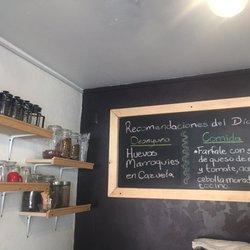 Recomendaciones del Día
Desayuno
Huevos
Marroquies
en Cazuela
Comida
• Farfale con s
de queso de
y tomate,
cebolla mora
tocino